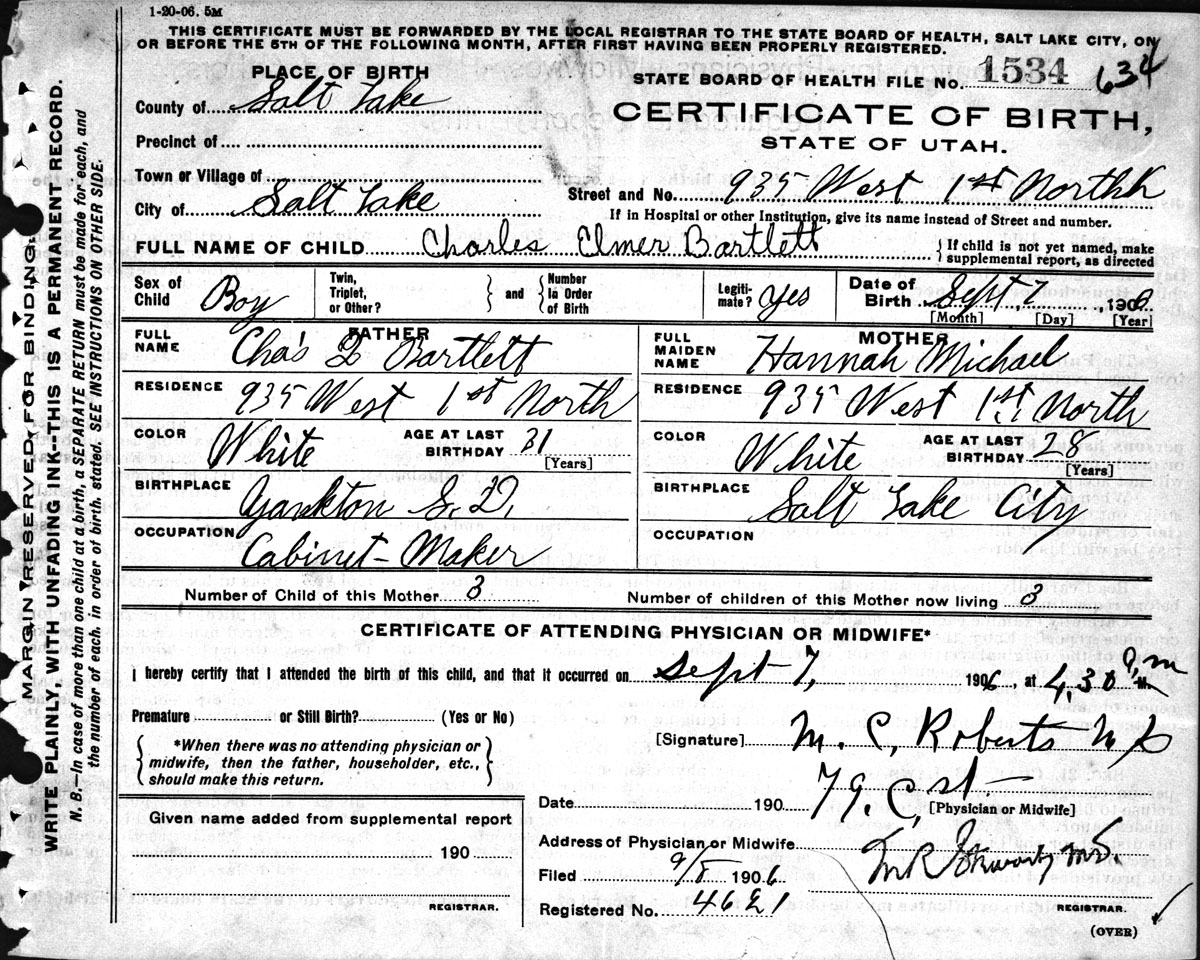 1-20-06. 5M
THIS CERTIFICATE MUST BE FORWARDED BY THE LOCAL REGISTRAR TO THE STATE BOARD OF HEALTH, SALT LAKE CITY, ON
OR BEFORE THE 5TH OF THE FOLLOWING MONTH, AFTER FIRST HAVING BEEN PROPERLY REGISTERED.
PLACE OF BIRTH
STATE BOARD OF HEALTH FILE No. 1534 634
County of Salt Lake
CERTIFICATE OF BIRTH,
STATE OF UTAH.
Precinct of
Town or Village of
Street and No. 935 West 1st North
City of Salt Lake
If in Hospital or other Institution, give its name instead of Street and number.
FULL NAME OF CHILD Charles Elmer Bartlett
If child is not yet named, make
supplemental report, as directed
Sex of Child Boy
Twin, Triplet, or Other? and Number In Order of Birth
Legiti-mate? yes
Date of Birth Sept 7, 1906
[Month] [Day] [Year]
FATHER
FULL NAME Cha's Bartlett
RESIDENCE 935 West 1st North
COLOR White AGE AT LAST BIRTHDAY 31
[Years]
BIRTHPLACE Yankton S. D.
OCCUPATION Cabinet-Maker
MOTHER
FULL MAIDEN NAME Hannah Michael
RESIDENCE 935 West 1st North
COLOR White AGE AT LAST BIRTHDAY 28
[Years]
BIRTHPLACE Salt Lake City
OCCUPATION
Number of Child of this Mother 3
Number of children of this Mother now living 3
CERTIFICATE OF ATTENDING PHYSICIAN OR MIDWIFE*
I hereby certify that I attended the birth of this child, and that it occurred on Sept 7, 1906, at 4,30 M.
Premature or Still Birth? (Yes or No)
*When there was no attending physician or
midwife, then the father, householder, etc.,
should make this return.
[Signature] M. C. Roberts
Date 190 79. C. st.
[Physician or Midwife]
Address of Physician or Midwife
Filed 9/8 1906
Registered No.
REGISTRAR.
(OVER)
Given name added from supplemental report
190
REGISTRAR.
MARGIN RESERVED FOR BINDING.
WRITE PLAINLY, WITH UNFADING INK--THIS IS A PERMANENT RECORD.
N. B.—In case of more than one child at a birth, a SEPARATE RETURN must be made for each, and
the number of each, in order of birth, stated. SEE INSTRUCTIONS ON OTHER SIDE.